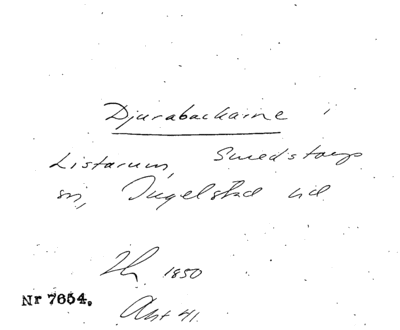 Djurabackarne i
Listarum, Smedstorps
sn, Ingelstad hd
1850
Nr 7654.
Akt 41.